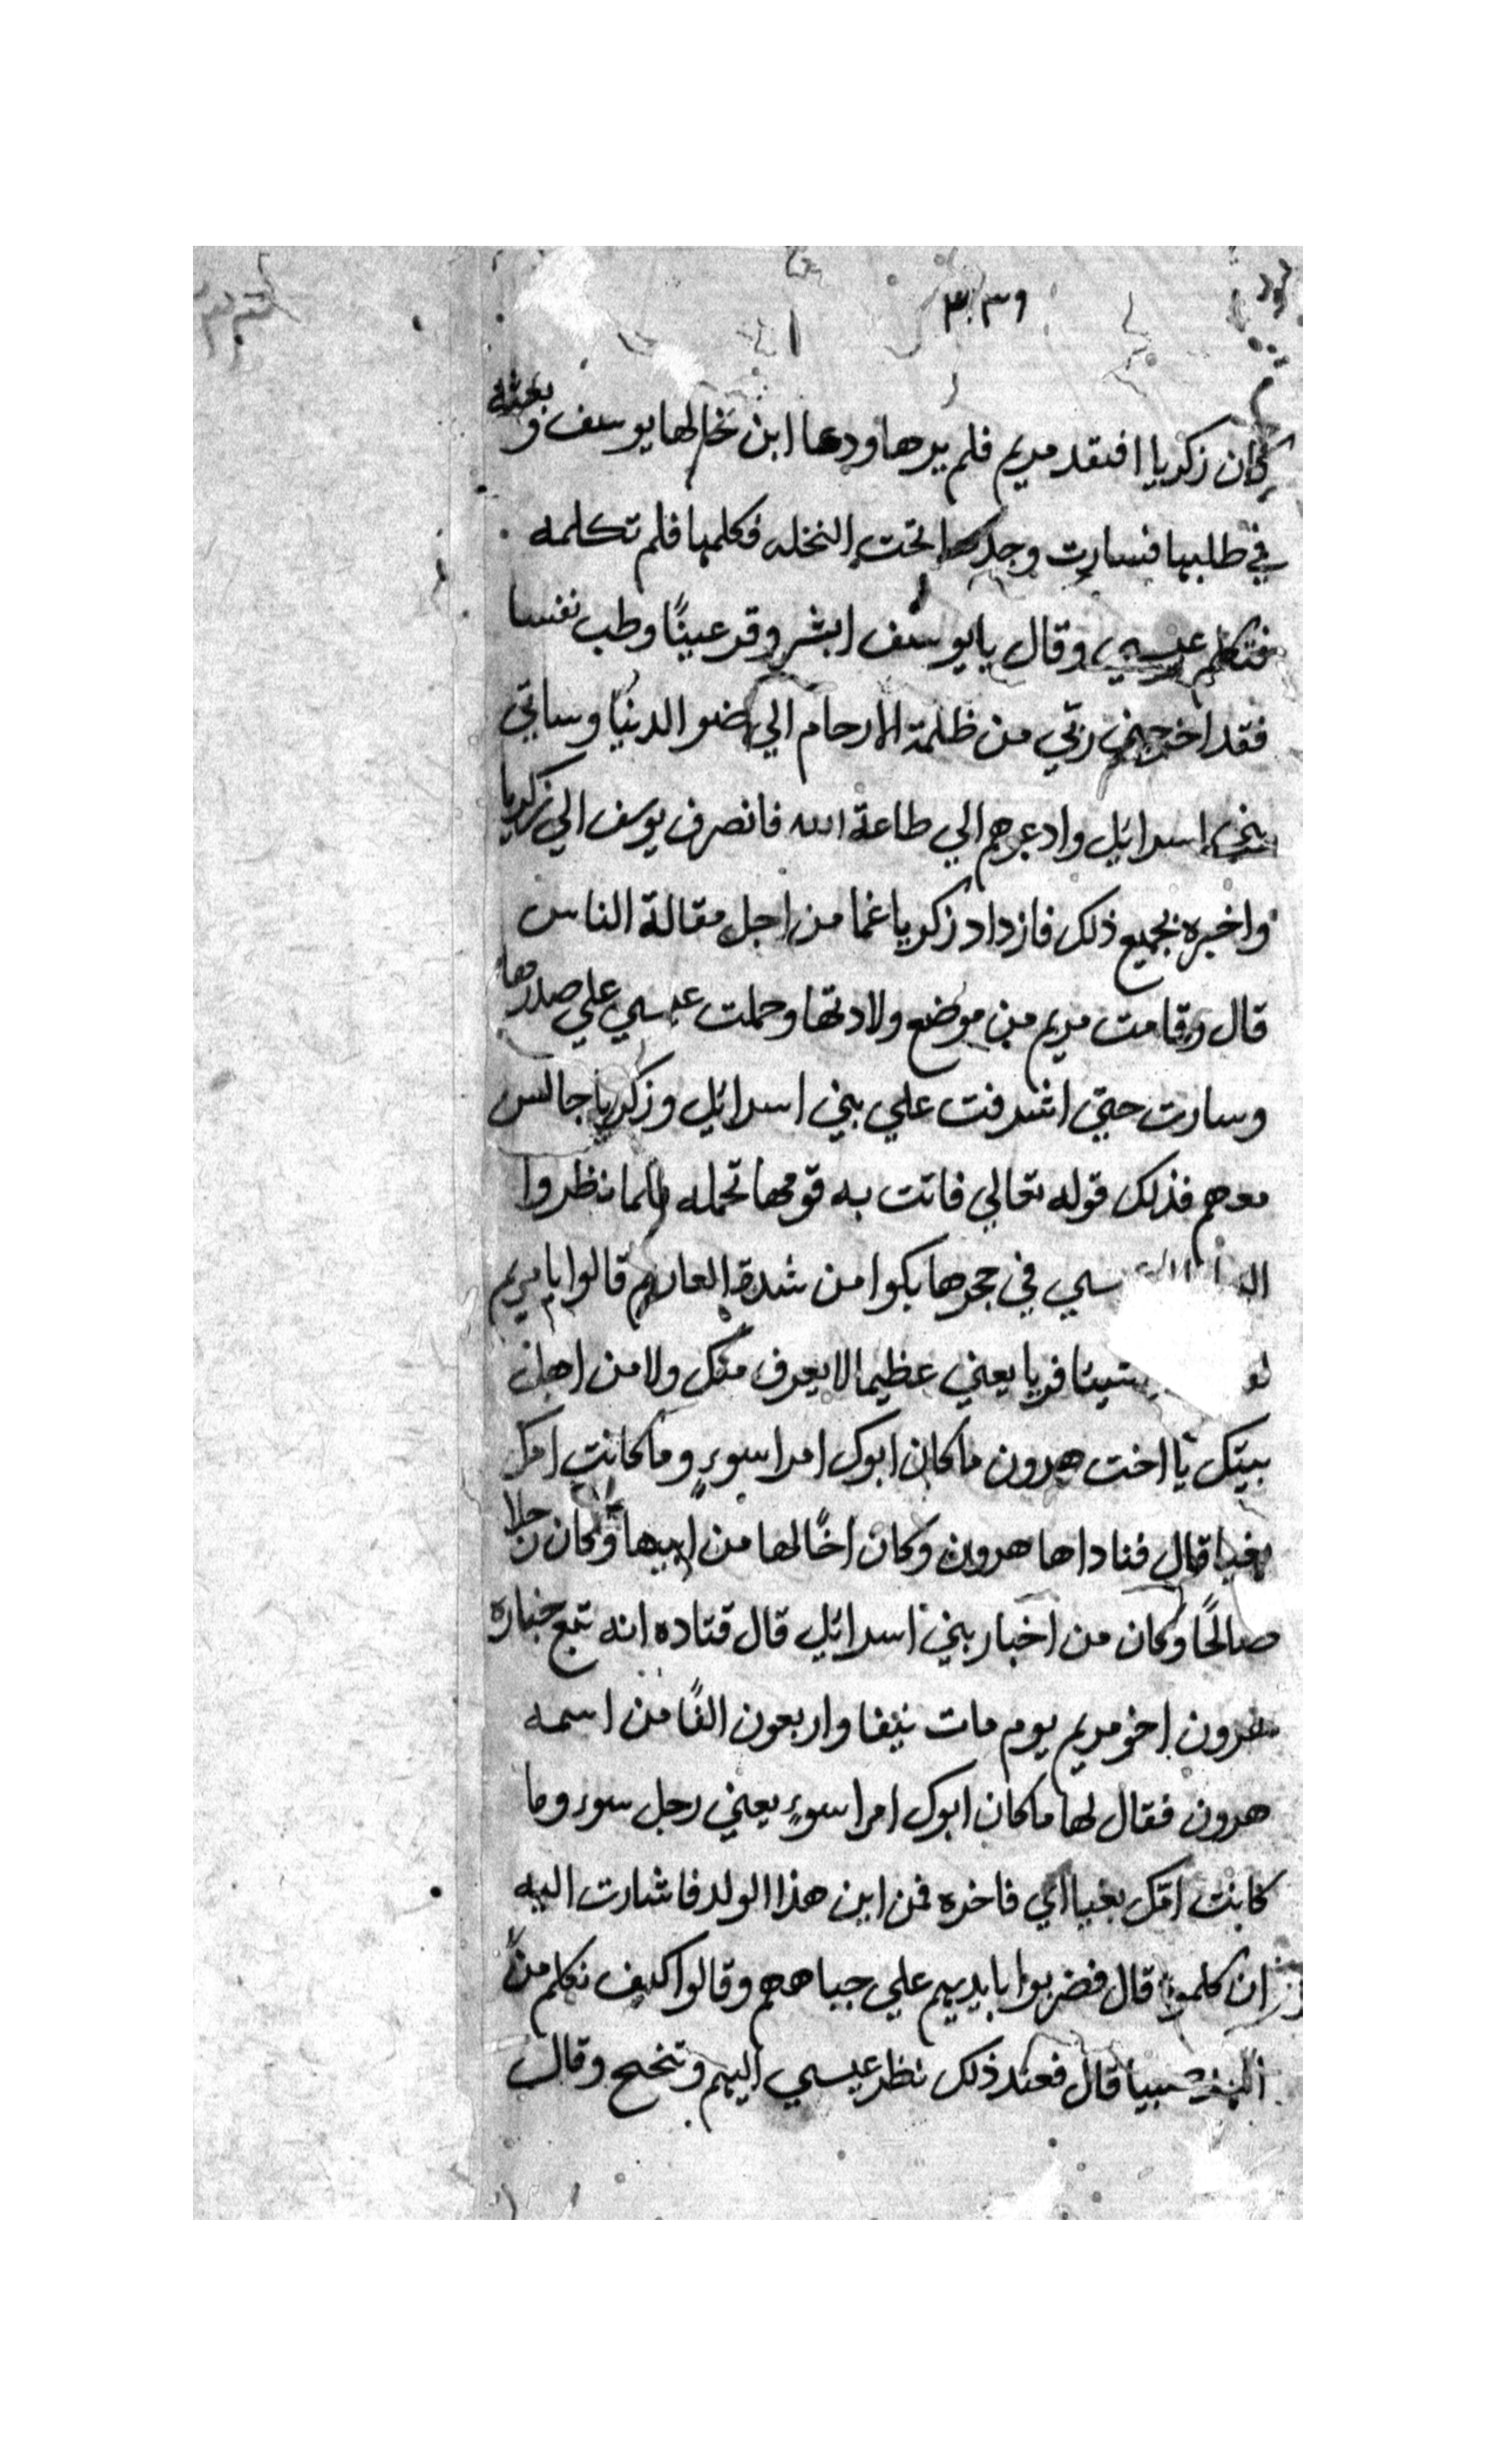 ٣٠٣٩
كان زكريا افتقد مريم فلم يرها ودعا ابن خالها يوسف وبعثه
في طلبها فسارت وجدها تحت النخله فكلمها فلم تكلمه
فتكلم عيسي وقال يايوسف ابشر وقر عينًا وطب نفسا
فقد اخرجني ربي من ظلمة الارحام الي ضو الدنيا وساتي
بني اسرائيل وادعوهم الي طاعة الله فانصرف يوسف الي زكريا
واخبره بجميع ذلك فازداد زكريا غما من اجل مقالة الناس
قال وقامت مريم من موضع ولادتها وحملت عيسي علي صدرها
وسارت حتي اشرفت علي بني اسرائيل وزكريا جالس
معهم فذلك قوله تعالي فاتت به قومها تحمله فلما نظروا
في حجرها بكوا من شدة العار ثم قالوا يا مريم
شيئا فريا يعني عظيما لا يعرف منك ولا من اهل
بيتك يا اخت هرون ما كان ابوك امرا سوءٍ وما كانت امك
بغيا قال فناداها هرون وكان اخًا لها من ابيها وكان رجلا
صالحًا وكان من اخبار بني اسرائيل قال قتاده انه تبع جنازة
هرون اخو مريم يوم مات نيفا واربعون الفًا من اسمه
هرون فقال لها ما كان ابوك امرا سوءٍ يعني رجل سوء وما
كانت امك بغيا اي فاخره فمن اين هذا الولد فاشارت اليه
ان كلموه قال فضربوا بايديهم علي جباههم وقالوا كيف نكلم من
صبيا قال فعند ذلك نظر عيسي اليهم وتنحنح وقال